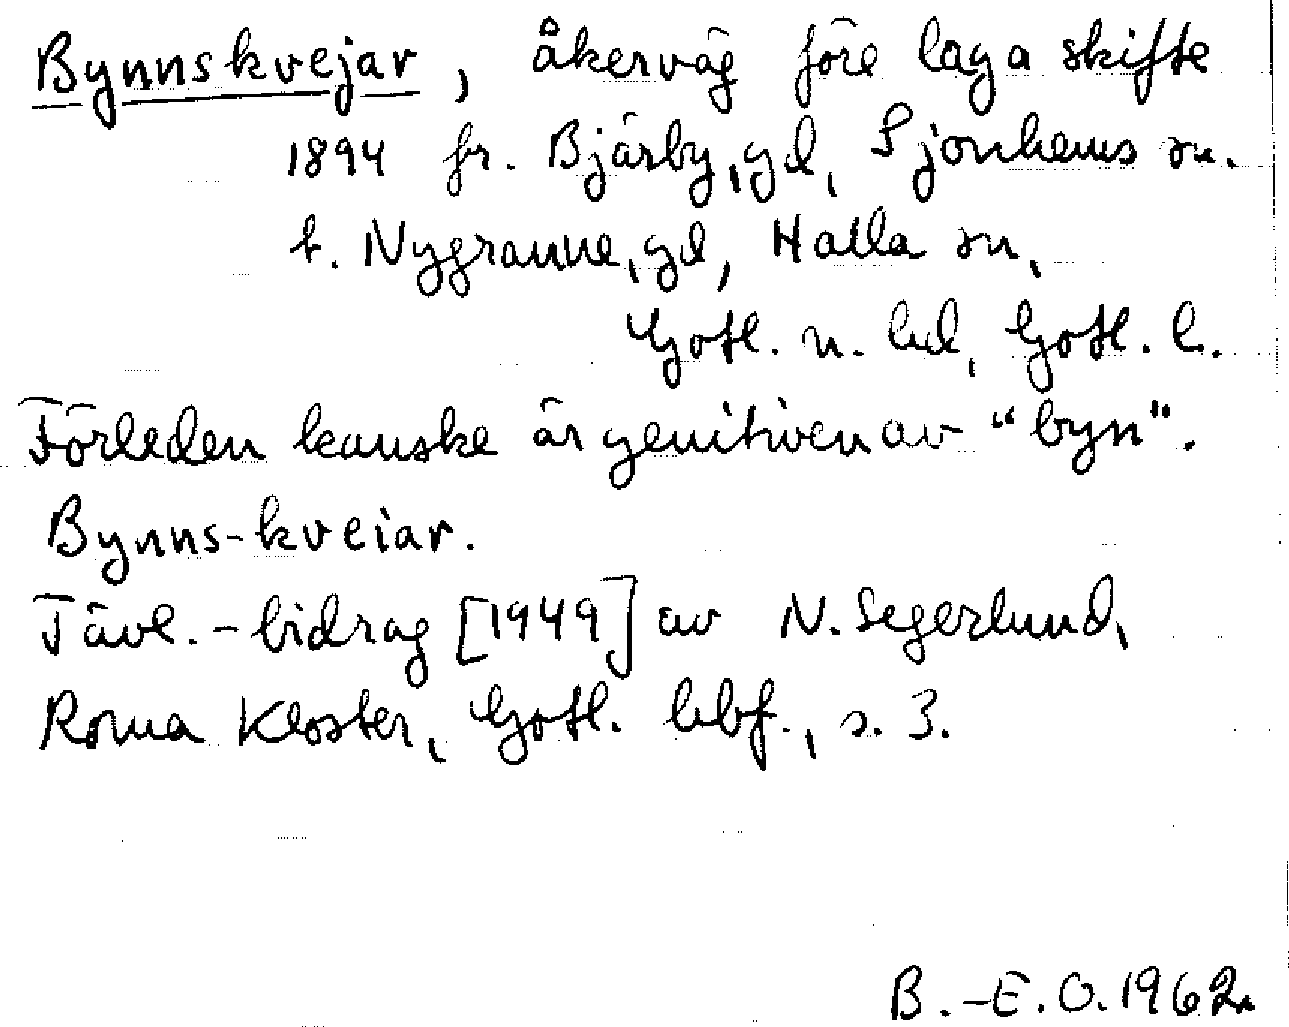 Bynnskvejar, åkerväg före laga skifte
1894 fr. Bjärby, gd, Sjonhems sn.
t. Nygranne, gd, Halla sn,
Gotl. n. hd, Gotl. l.
Förleden kanske är genitiven av "byn".
Bynns-kveiar.
Tävl.-bidrag [1949] av N. Segerlund,
Roma Kloster, Gotl. hbf., s. 3.
B.-E.O. 1962.